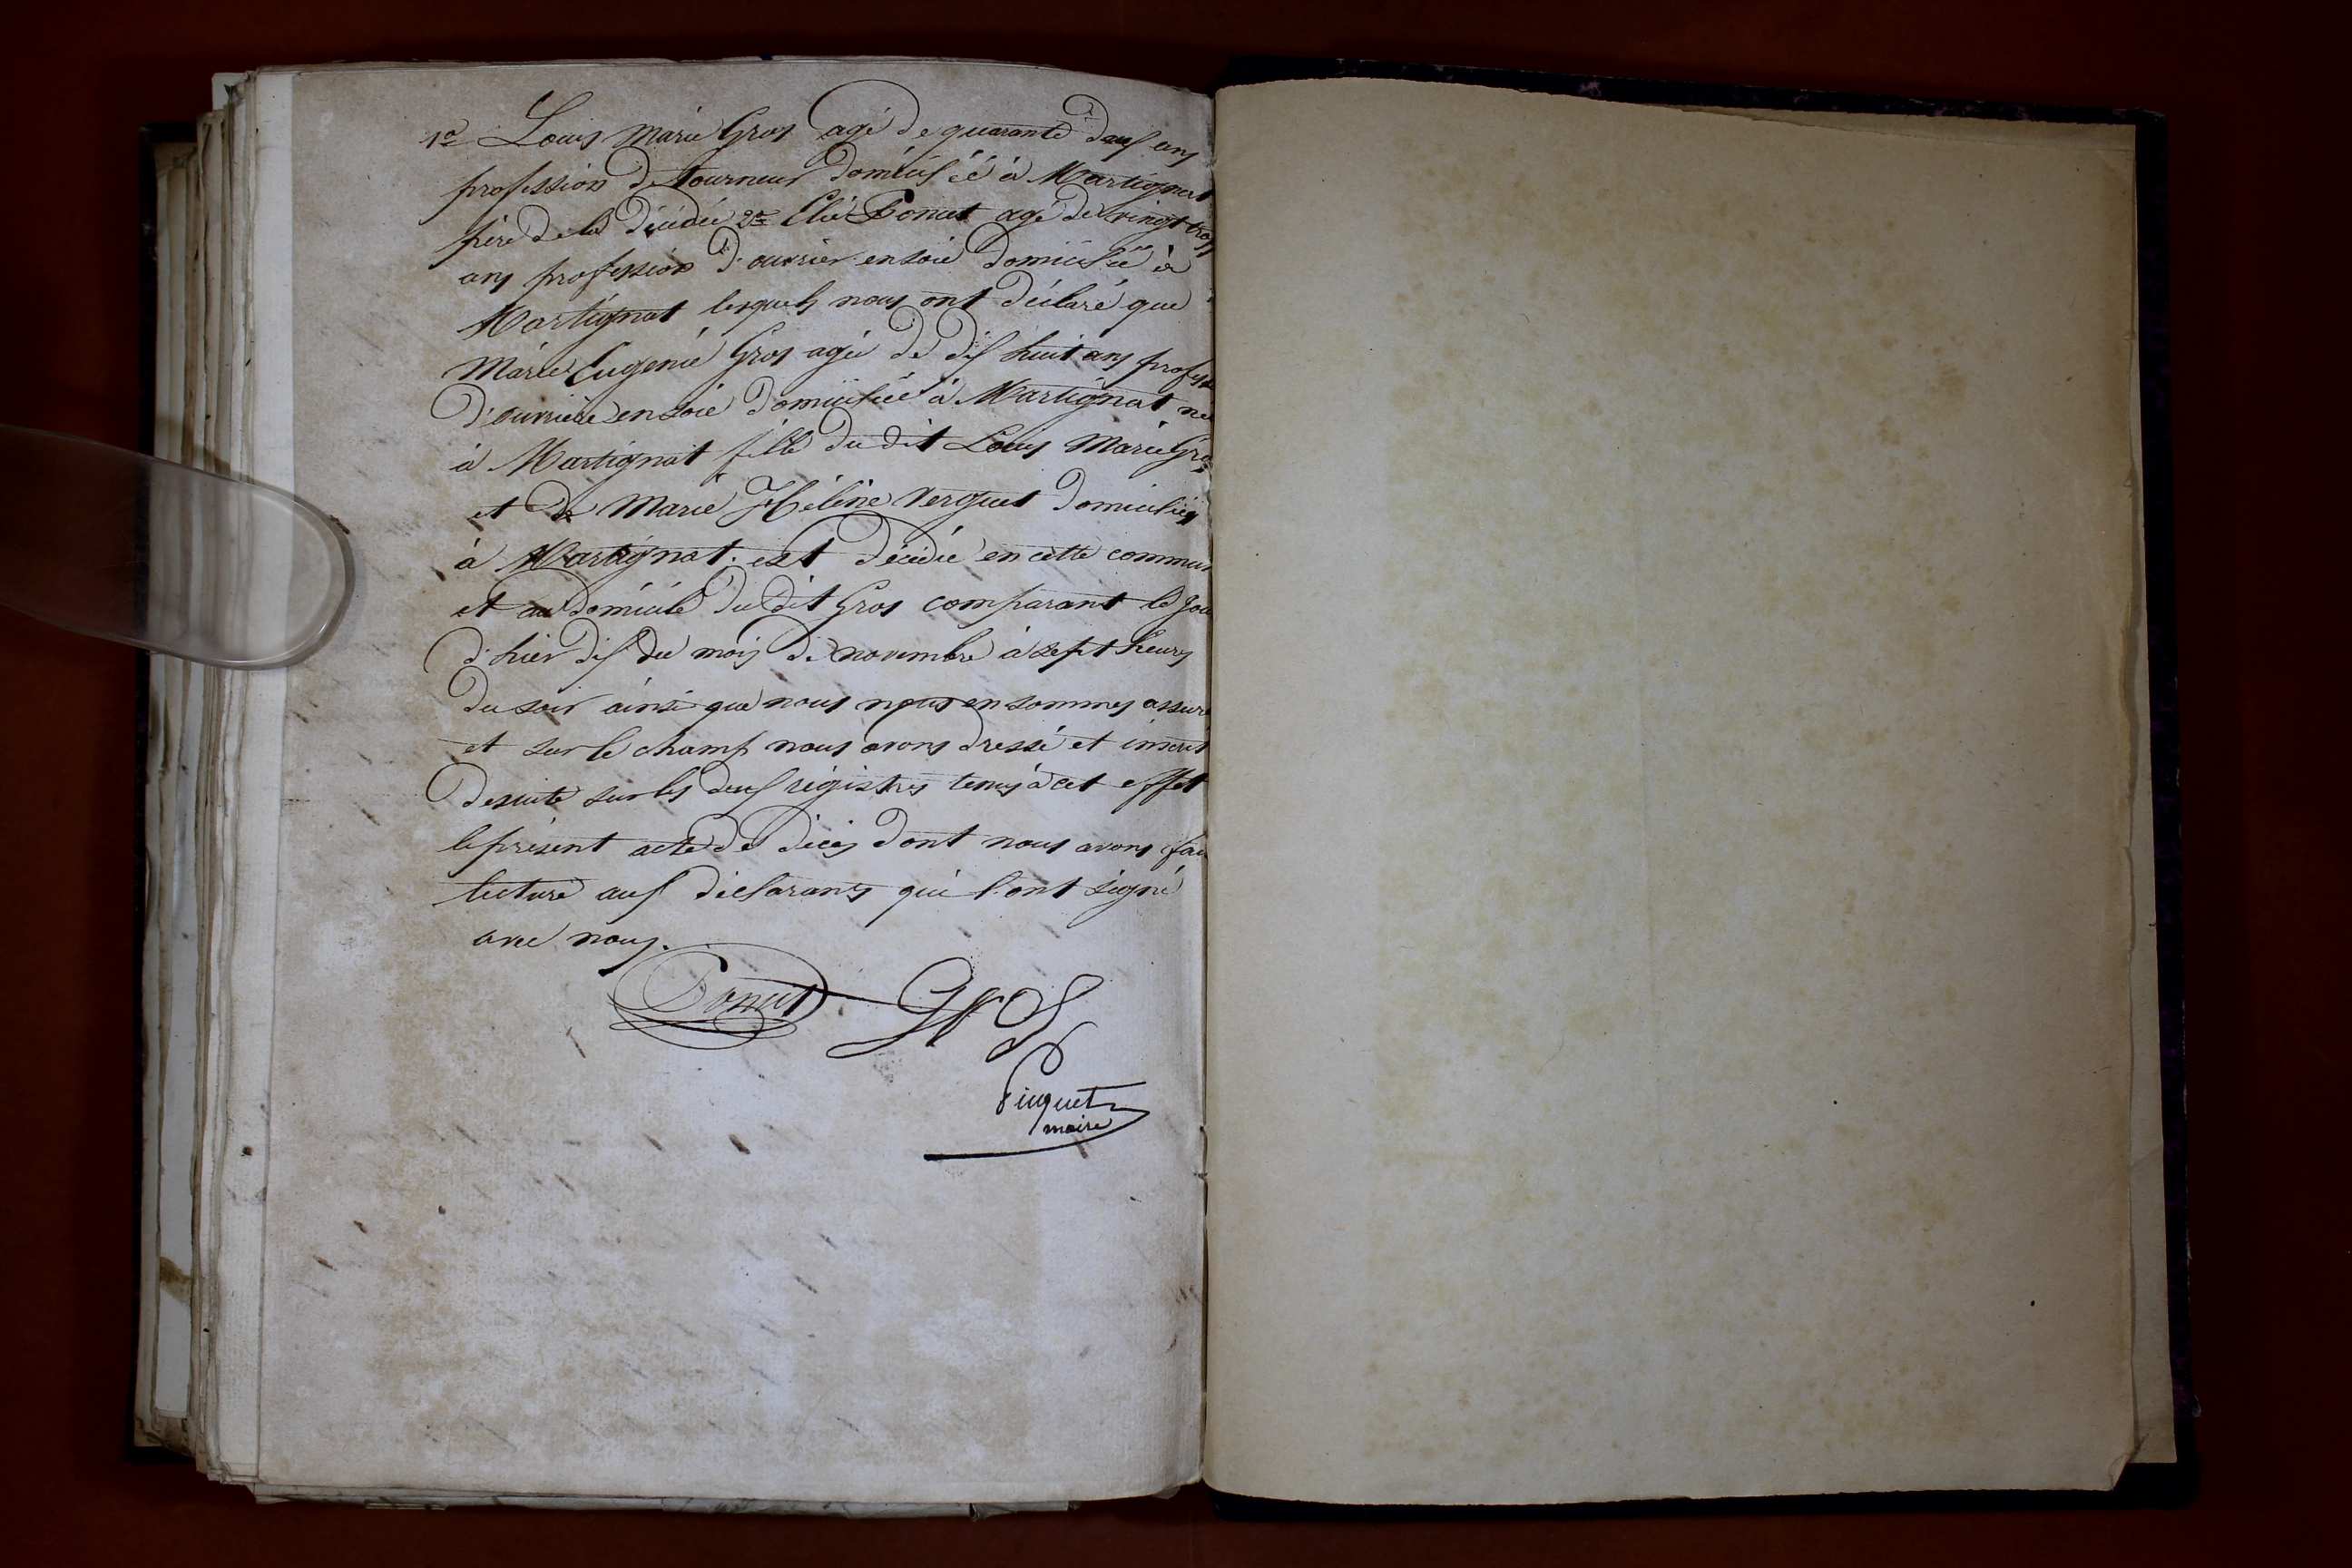 1º Louis Marie Gros agé de quarante deux ans
profession de tourneur domicilié à Martignat
père de la décédée 2º Elie Poncet agé de vingt trois
ans profession d'ouvrier en soie domicilié à
Martignat lesquels nous ont déclaré que
Marie Eugenie Gros agée de dix huit ans profess
d'ouvrière en soie domiciliée à Martignat née
à Martignat fille du dit Louis Marie Gros
et de Marie Hélène Verguet domiciliés
à Martignat. est décédée en cette commun
et au domicile du dit Gros comparant le jou
d'hier dix du mois de novembre à sept heures
du soir ainsi que nous nous en sommes assuré
et sur le champ nous avons dressé et inscrit
de suite sur les deux régistres tenus à cet effet
le présent acte de décès dont nous avons fai
lecture aux déclarants qui l'ont signé
avec nous.
Poncet Gros
maire